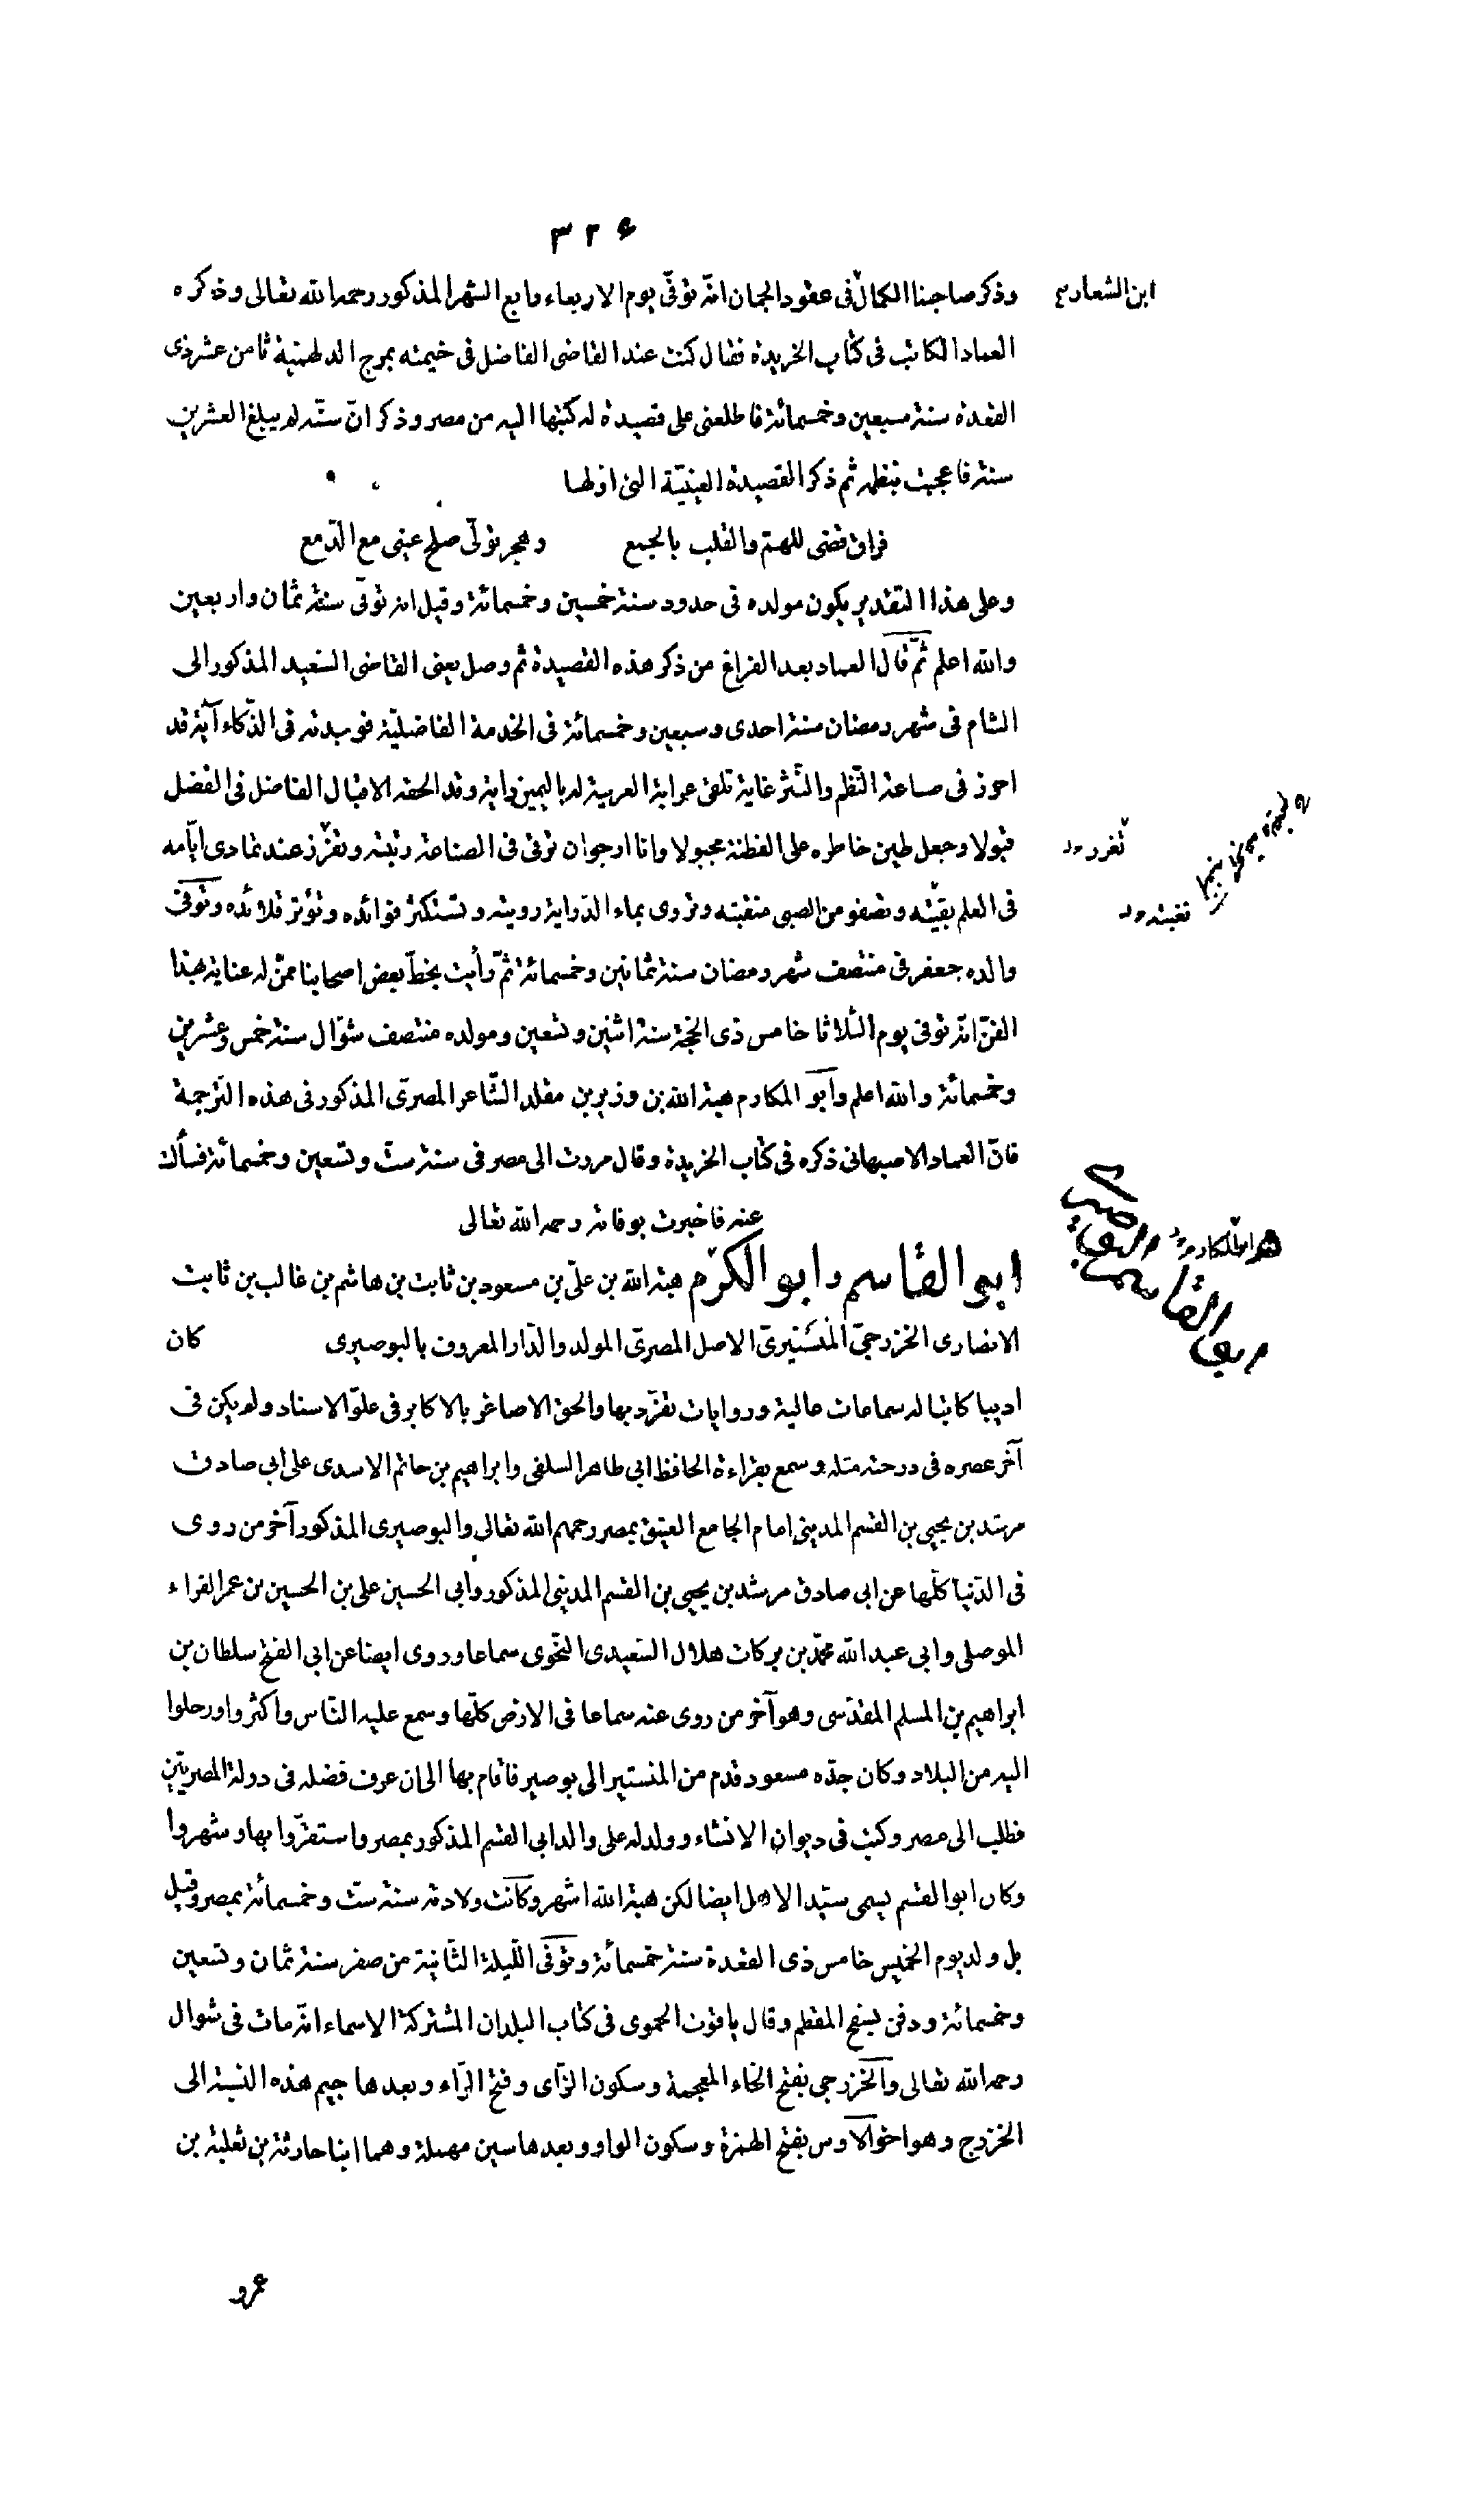 ٣٢٤
وذكر صاحبنا الكمال فى عقود الجمان انّه توفّى يوم الاربعاء رابع الشهر المذكور رحمه الله تعالى وذكره
ابن الشعار
العماد الكاتب فى كتاب الخريدة فقال كنت عند القاضى الفاضل فى خيمته بمرج الدلهمية ثامن عشر ذى
القعدة سنة سبعين وخمسمائة فاطلعنى على قصيدة له كتبها اليه من مصر وذكر انّ سنّه لم يبلغ العشرين
سنة فاعجبت بنظمه ثم ذكر القصيدة العينيّة التى اولها
فراق قضى للهمّ والقلب بالجمع وهجر تولّى صلح عينى مع الدّمع
وعلى هذا التقدير يكون مولده فى حدود سنة خمسين وخمسمائة وقيل انه توفّى سنة ثمان واربعين
والله اعلم ثمّ قال العماد بعد الفراغ من ذكر هذه القصيدة ثم وصل يعنى القاضى السّعيد المذكور الى
الشام فى شهر رمضان سنة احدى وسبعين وخمسمائة فى الخدمة الفاضليّة فوجدته فى الذّكاء آية قد
احرز فى صناعة النّظم والنّثر غاية تلقى عرابة العربية له باليمين راية وقد الحفه الاقبال الفاضل فى الفضل
قبولا وجعل طين خاطره على الفطنة مجبولا وانا ارجو ان ترقى فى الصناعة رتبته وتغزر عند تمادى ايّامه
تغرر
فى العلم بقيّته وتصفو من الصبى منقبته وتروى بماء الدّراية رويته وتستكثر فوائده وتؤثر قلائده وتوفى
نغبته
والده جعفر فى منتصف شهر رمضان سنة ثمانين وخمسمائة ثمّ رأيت بخطّ بعض اصحابنا ممّن له عناية بهذا
الفنّ انّه توفى يوم الثلاثا خامس ذى الحجّة سنة اثنين وتسعين ومولده منتصف شوّال سنة خمس وعشرين
وخمسمائة والله اعلم وابو المكارم هبة الله بن وزير بن مقلد الشّاعر المصرىّ المذكور فى هذه التّرجمة
فانّ العماد الاصبهانى ذكره فى كتاب الخريدة وقال مررت الى مصر فى سنة ستّ وتسعين وخمسمائة فسألت
عنه فاخبرت بوفاته رحمه الله تعالى
ابو القاسم وابو الكرم هبة الله بن علىّ بن مسعود بن ثابت بن هاشم بن غالب بن ثابت
الانصارى الخزرجىّ المنستيرىّ الاصل المصرىّ المولد والدّار المعروف بالبوصيرى كان
اديبا كاتبا له سماعات عالية وروايات تفرّد بها والحق الاصاغر بالاكابر فى علوّ الاسناد ولم يكن فى
آخر عصره فى درجته مثله وسمع بقراءة الحافظ ابى طاهر السلفى وابراهيم بن حاتم الاسدى على ابى صادق
مرشد بن يحيى بن القسم المدينى امام الجامع العتيق بمصر رحمهم الله تعالى والبوصيرى المذكور آخر من روى
فى الدّنيا كلّها عن ابى صادق مرشد بن يحيى بن القسم المدينى المذكور وابى الحسين على بن الحسين بن عمر الفراء
الموصلى وابى عبد الله محمّد بن بركات هلال السّعيدى النّحوى سماعا وروى ايضا عن ابى الفتح سلطان بن
ابراهيم بن المسلم المقدّسى وهو آخر من روى عنه سماعا فى الارض كلّها وسمع عليه النّاس واكثروا ورحلوا
اليه من البلاد وكان جدّه مسعود قدم من المنستير الى بوصير فاقام بها الى ان عرف فضله فى دولة المصريّين
فطلب الى مصر وكتب فى ديوان الانشاء وولد له على والد ابى القسم المذكور بمصر واستقرّوا بها وشهروا
وكان ابو القسم يسمى سيّد الاهل ايضا لكن هبة الله اشهر وكانت ولادته سنة ستّ وخمسمائة بمصر وقيل
بل ولد يوم الخميس خامس ذى القعدة سنة خمسمائة وتوفّى اللّيلة الثّانية من صفر سنة ثمان وتسعين
وخمسمائة ودفن بسفح المقطم وقال ياقوت الحموى فى كتاب البلدان المشتركة الاسماء انّه مات فى شوال
رحمه الله تعالى والخزرجى بفتح الخاء المعجمة وسكون الزّاى وفتح الرّاء وبعدها جيم هذه النّسبة الى
الخزرج وهو اخو الاوس بفتح الهمزة وسكون الواو وبعدها سين مهملة وهما ابنا حارثة بن ثعلبة بن
عمرو